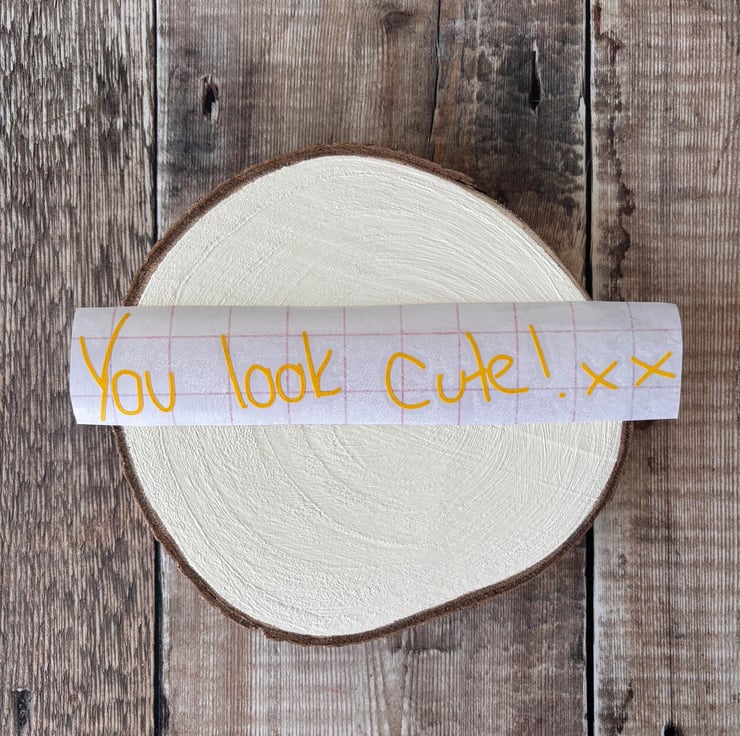 You look cute! xx